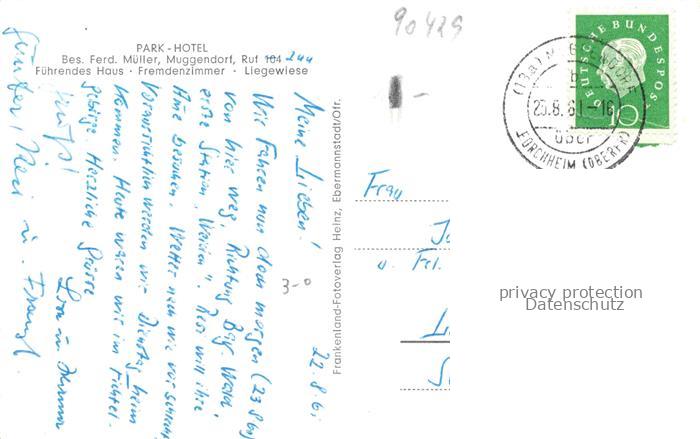 PARK-HOTEL
Bes. Ferd. Müller, Muggendorf, Ruf 104 244
Führendes Haus · Fremdenzimmer · Liegewiese
90429
22.8.61
Meine Lieben!
Wir fahren nun doch morgen (23.8.61)
von hier weg. Richtung Bay. Wald.
erste Station "Weiden". Resi will ihre
Tante besuchen. Wetter nach wie vor schlecht
Voraussichtlich werden wir Dienstag heim
kommen. Heute waren wir im Fichtel-
gebirge. Herzliche Grüsse
Günter,
u. Franzl.
3-0
Frankenland-Fotoverlag Heinz, Ebermannstadt/Ofr.
Frau
u. Frl.
DEUTSCHE BUNDESPOST
10
(13a) MUGGENDORF
b
23.8.61-16
über
FORCHHEIM (OBERFR)
privacy protection
Datenschutz